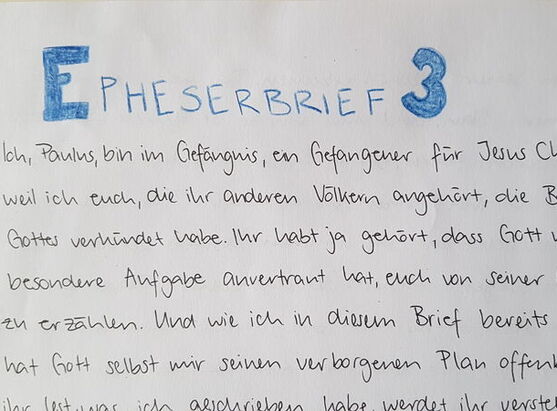 EPHESERBRIEF 3
Ich, Paulus, bin im Gefängnis, ein Gefangener für Jesus
weil ich euch, die ihr anderen Völkern angehört, die
Gottes verkündet habe. Ihr habt ja gehört, dass Gott
besondere Aufgabe anvertraut hat, euch von seiner
zu erzählen. Und wie ich in diesem Brief bereits
hat Gott selbst mir seinen verborgenen Plan
ihr lest, was ich geschrieben habe, werdet ihr